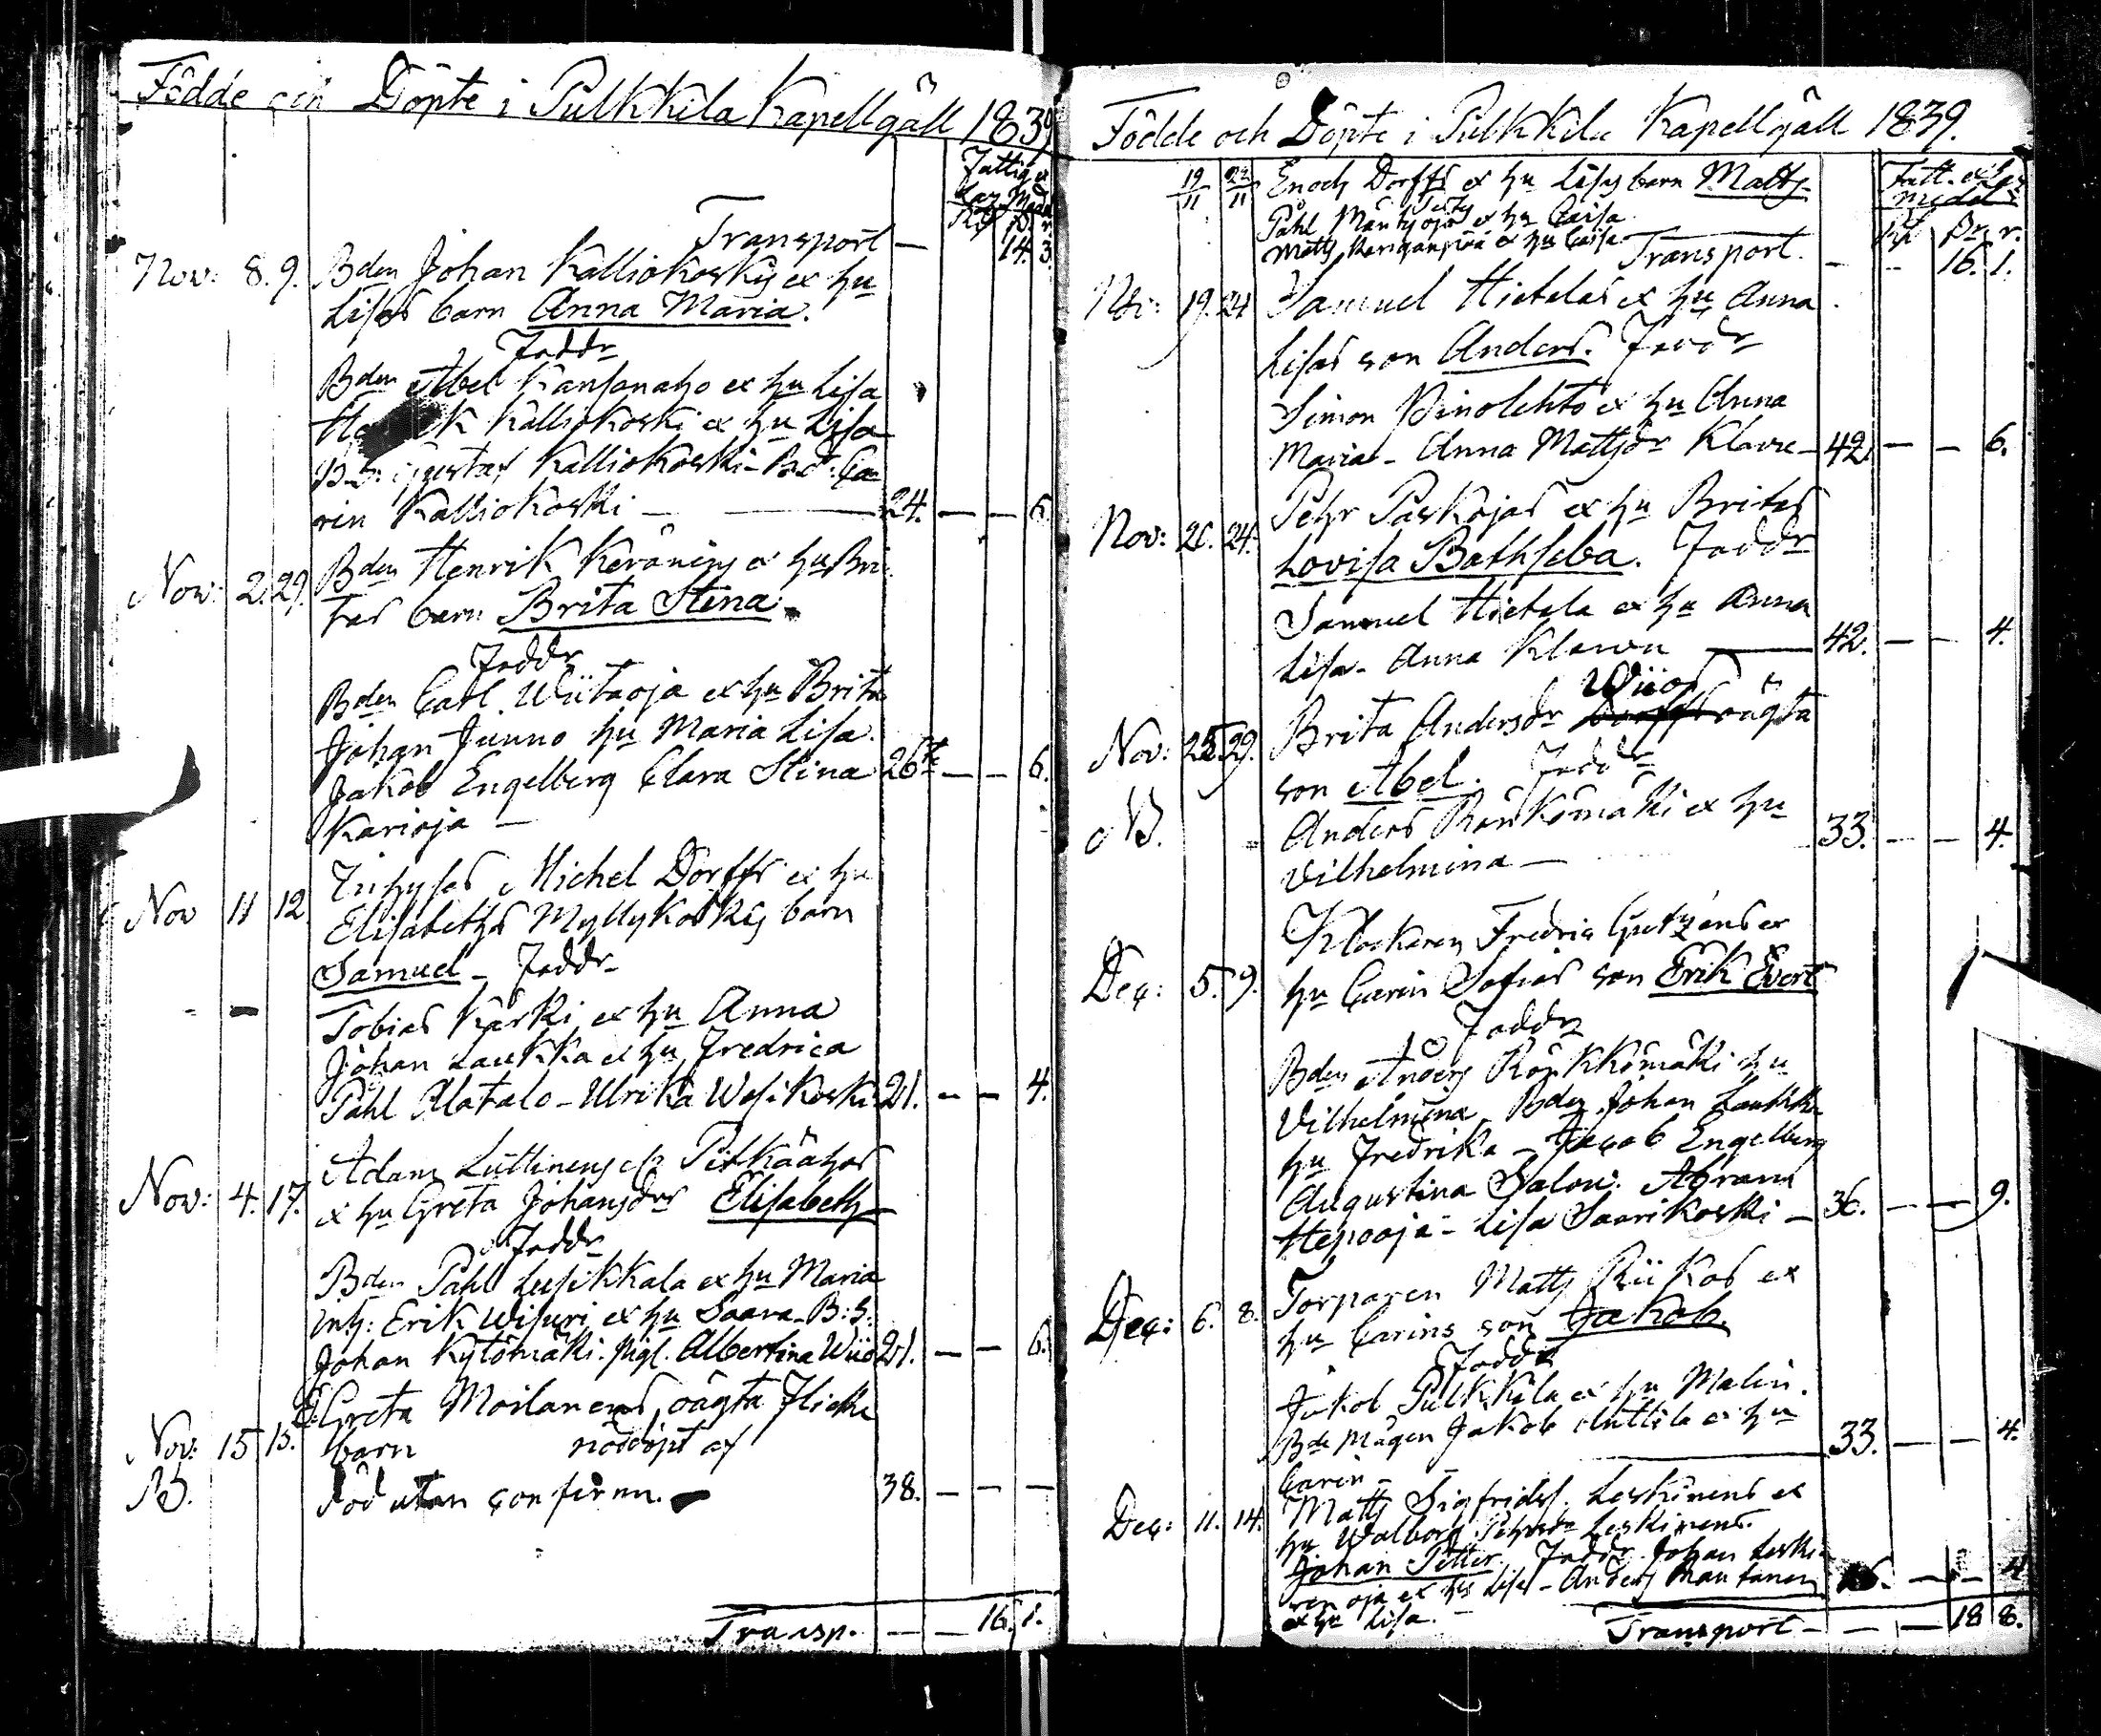 Födde och Döpte i Pulkkila Kapellgäll 1839
Fattig ex
Laz. Medel
Transport — 14. 3.
Nov: 8. 9. Bden Johan Kalliokoskis ex hu
Lisas barn Anna Maria.
Faddr
Bden Abel Kansanaho ex hu Lisa
Kalliokoski ex hu Lisa
B.S: Gustaf Kalliokoski - Bd: Ca
rin Kalliokoski — 24. — — 6.
Nov: 2. 29. Bden Henrik Keränens ex hu Bri
tas barn Brita Stina
Faddr
Bden Carl Wiitaoja ex hu Brita
Johan Junno hu Maria Lisa.
Jakob Engelberg Clara Stina 26 — — 6.
Karioja —
Inhyses Michel Dorffs ex hu
Nov 11 12. Elisabeths Myllykoskis barn
Samuel - Faddr
Tobias Kärki ex hu Anna
Johan Laukka ex hu Fredrica
Påhl Alatalo - Ulrika Wesikoski 21. — — 4.
Adam Luttinens Pitkäähos
Nov: 4. 17. ex hu Greta Johansdrs Elisabeth
Faddr
Bden Påhl Lusikkala ex hu Maria
inh: Erik Wisuri ex hu Saara - B:S:
Johan Kytömäki. pig. Albertina Wiio 21. — — 6.
Greta Moilanens oägta Flicke
Nov: 15 15. barn nöddöpt af
NB. död utan confirm. 38. — — —
Transp. — — 16. 1.
Födde och Döpte i Pulkkila Kapellgäll 1839.
19/11 22/11 Enoch Dorffs ex hu Lisas barn Matts
Påhl Mäntyoja ex hu Caisa
Fatt. ex Laz
medel
Matts ex hu Caisa Transport. — — 16. 1.
19. 24 Samuel Hietalas ex hu Anna
Lisas son Anders. Faddr
Simon Pinolehto ex hu Anna
Maria - Anna Mattsdr Klavu - 42 — — 6.
Pehr Paskojas ex hu Britas
Nov: 20. 24. Lovisa Bathseba. Faddr
Samuel Hietala ex hu Anna
Lisa - Anna Klavu — 42. — — 4.
Wiios
Brita Andersdr Dorffs oägta
Nov: 25. 29. son Abel. Faddr
NB. Anders Rönkömäki ex hu
Vilhelmina — 33. — — 4.
Klockaren Fredric Gutzéns ex
Dec: 5. 9. hu Carin Sofias son Erik Evert
Faddr
Bden Anders Rönkkömäki hu
Vilhelmina Bden Johan Laukka
hu Fredrika - Jacob Engelberg
Augustina Salovi. Abram
Hepooja - Lisa Saarikoski — 36. — — 9.
Torparen Matts Riikos ex
Dec: 6. 8. hu Carins son Jakob.
Faddr
Jakob Pulkkila ex hu Malin.
Bde mågen Jakob Anttila ex hu
Carin — 33. — — 4.
Dec: 11. 14. Matts Sigfridss. Leskinens ex
hu Walborg Pehrsdr Leskinens.
Johan Petter Faddr Johan Leski
oja ex hu Lisa - Anders Mantanen — — 4
ex hu Lisa.
Transport — — — 18 8.